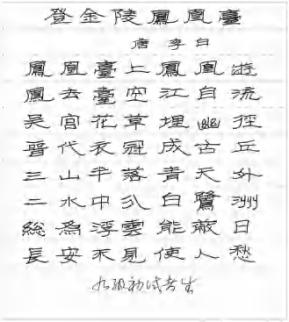 登金陵鳳凰臺
唐 李白
鳳凰臺上鳳凰遊
鳳去臺空江自流
吳宮花草埋幽徑
晉代衣冠成古丘
三山半落青天外
二水中分白鷺洲
總為浮雲能蔽日
長安不見使人愁
九級初試考生